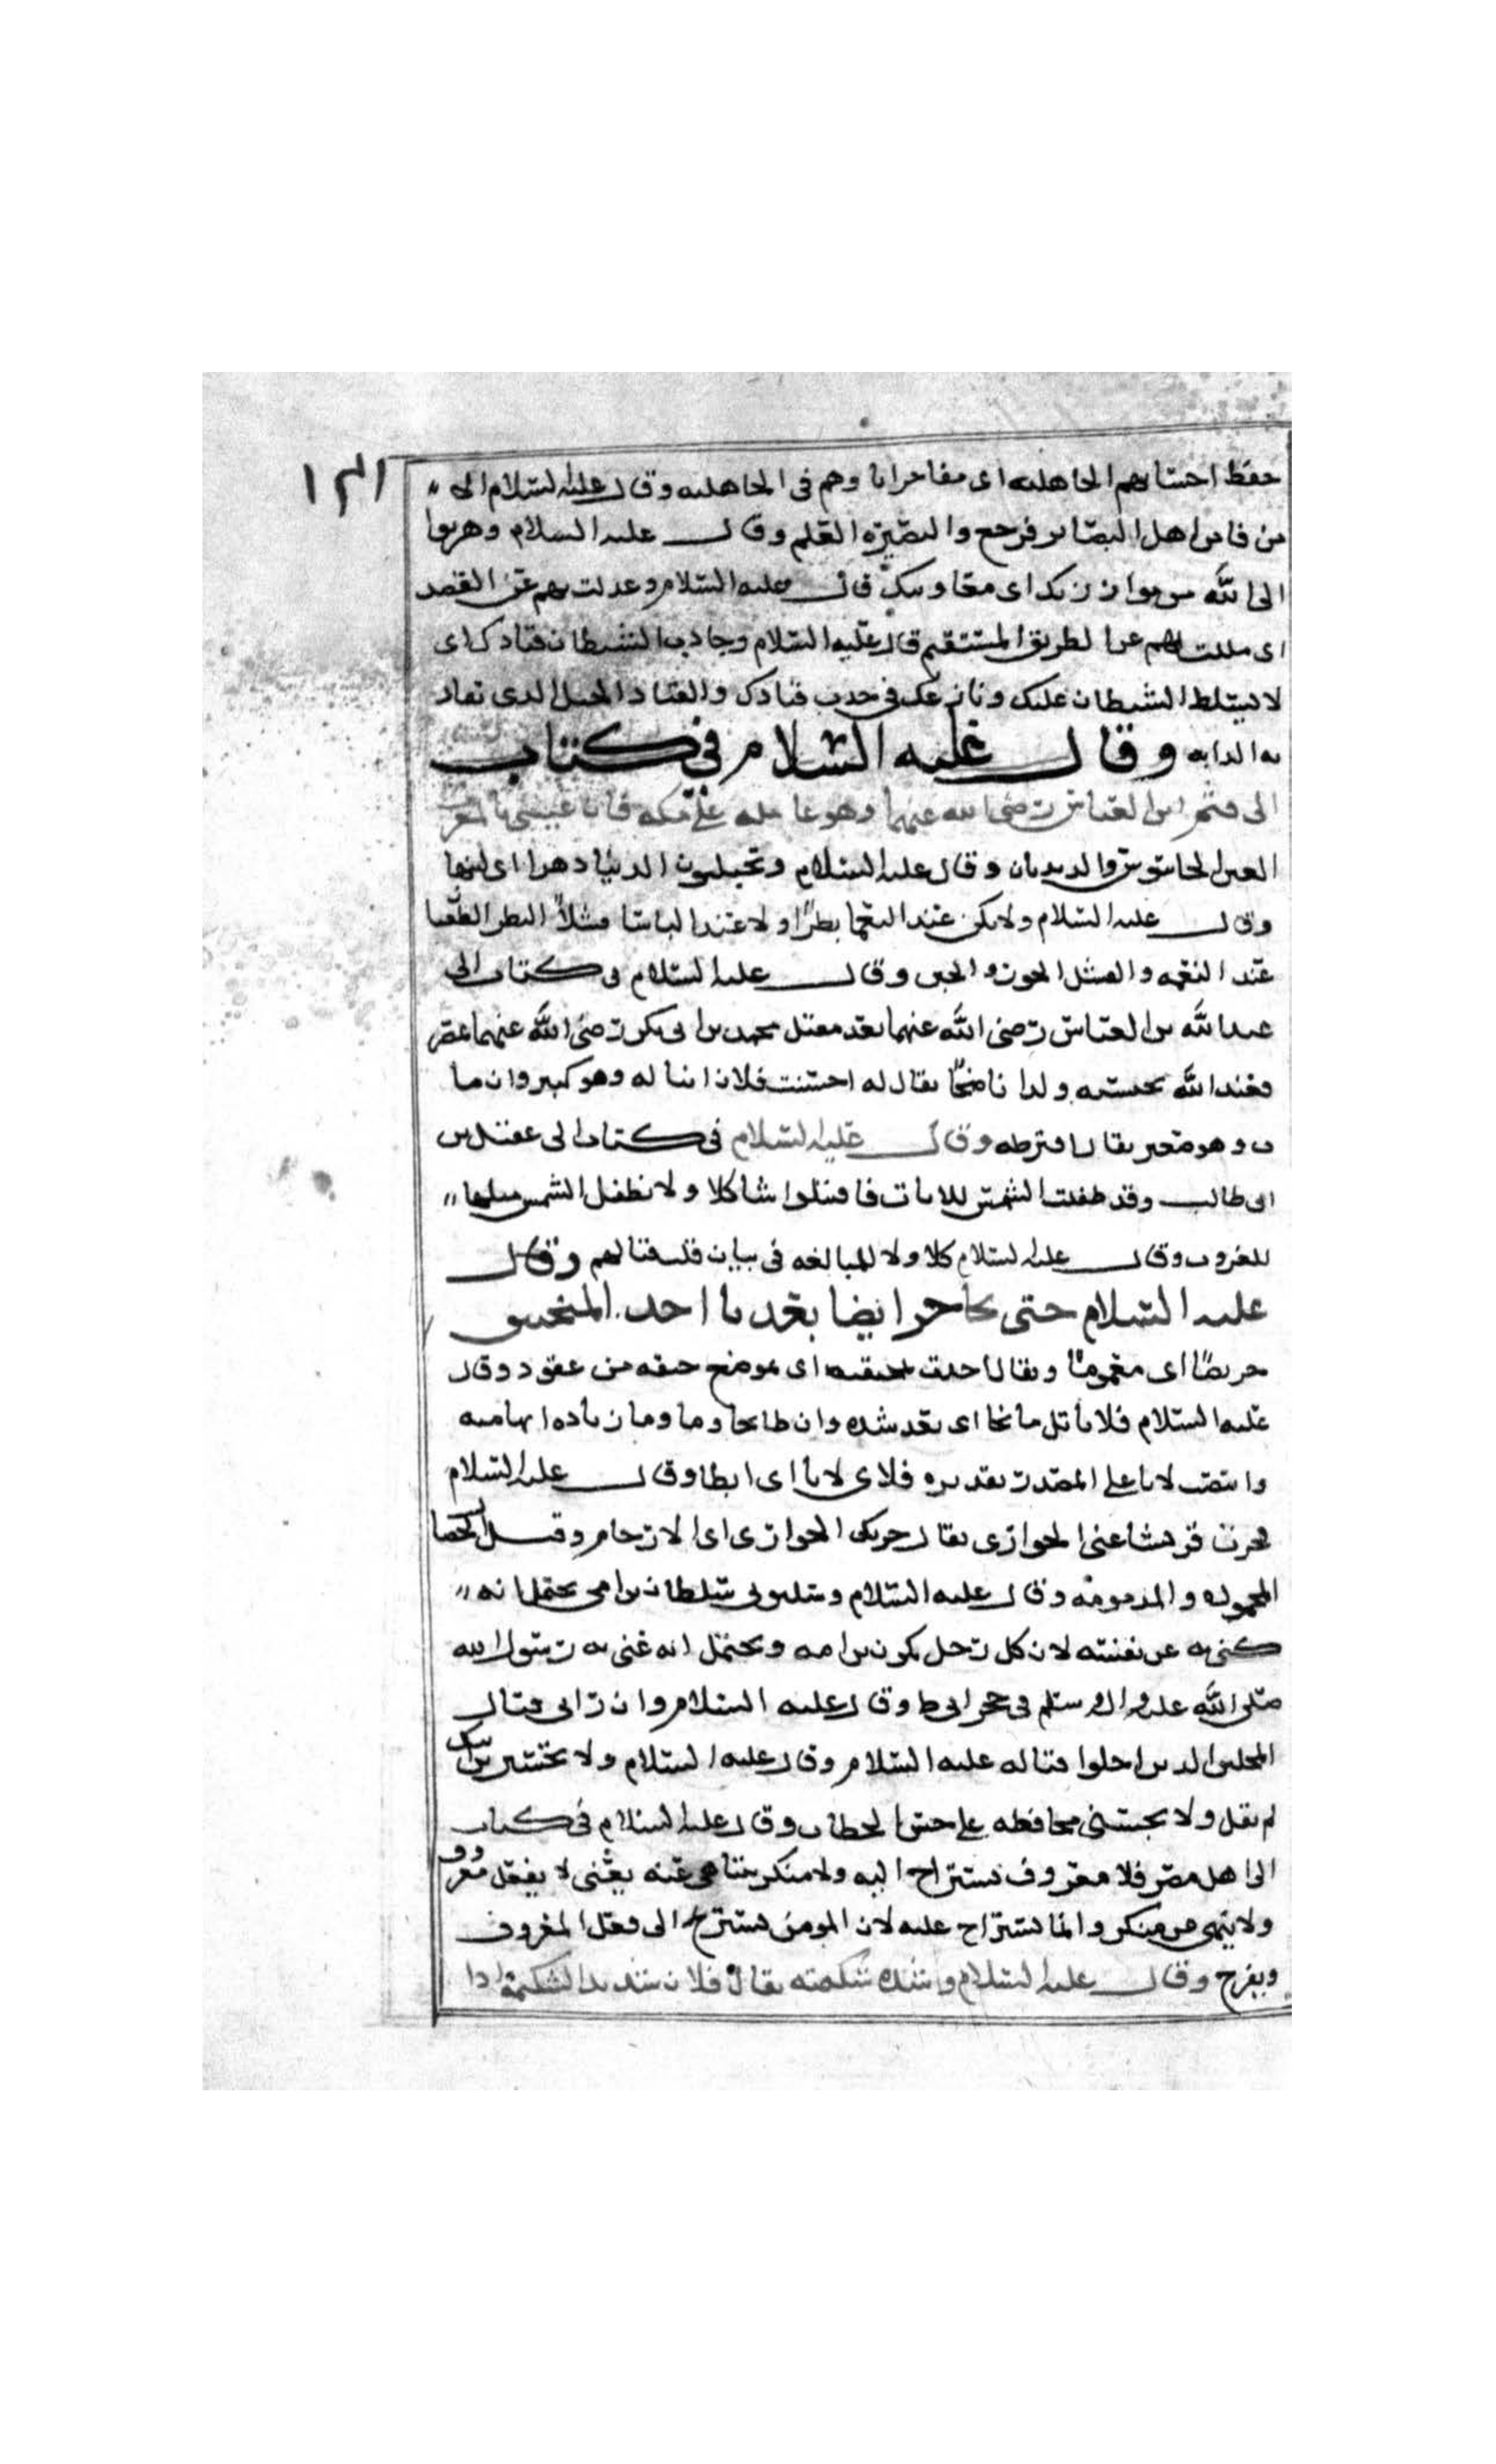 ١٣١
حفظ احسابهم الجاهليه اى مفاخرابا وهم فى الجاهليه وقال عليه السلام الا
من فا من اهل البصاير فرجع والبصيره العلم وقال عليه السلام وهربوا
الى الله من موازرتك اى معاونتك قال عليه السلام وعدلت بهم عن القصد
اى ملت بهم عن الطريق المستقيم قال عليه السلام وجاذب الشيطان قيادك اى
لا يتسلط الشيطان عليك ونازعك فى جذب قيادك والقياد الحبل الذى تقاد
به الدابه وقال عليه السلام فى كتاب
الى قثم ابن العباس رضى الله عنهما وهو عامله على مكه فان عينى بالمغرب
العين الجاسوس والديدبان وقال عليه السلام وتحتلبون الدنيا درها اى لبنها
وقال عليه السلام ولا تكن عند النعما بطرا ولا عند الباسا فشلا البطر الطغيا
عند النعمه والفشل الخوف والجبن وقال عليه السلام فى كتاب الى
عبد الله بن العباس رضى الله عنهما بعد مقتل محمد بن ابى بكر رضى الله عنهما بمصر
فعند الله نحتسبه ولدا ناصحا يقال له احتسب فلان ابنا له وهو كبير وان ما
ت وهو صغير يقال افترطه وقال عليه السلام فى كتاب الى عقيل بن
ابى طالب وقد طفلت الشمس للاياب فاقتتلوا شيا كلا ولا تطفل الشمس ميلها
للغروب وقال عليه السلام كلا ولا للمبالغه فى بيان قلة قتالهم وقال
عليه السلام حتى نجا جريضا بعد ما اخذ المخنق
جريضا اى مغموما ويقال اخذت بمخنقه اى موضع خنقه من عقود وقال
عليه السلام فلايا بلاى ما نجا اى بعد شده وان طا نجا وما وما زياده ابهاميه
وانتصب لايا على المصدر تقديره فلاى لايا اى ابطا وقال عليه السلام
فجزت قريشا عنى الجوازى يقال جزتك الجوازى اى الارحام وقيل الخصا
المحموله والمذمومه وقال عليه السلام وسلبونى سلطان ابن امى يحتمل انه
كنى به عن نفسه لان كل رجل يكون بن امه ويحتمل انه عنى به رسول الله
صلى الله عليه واله وسلم فى حجر ابى طا وقال عليه السلام وان رائى قتال
المحلين الذين احلوا قتاله عليه السلام وقال عليه السلام ولا تحسبن ابن ابيك
لم يقل ولا تحسبنى محافظه على حسن الخطاب وقال عليه السلام فى كتاب
الى اهل مصر فلا معروف يستراح اليه ولا منكر يتناهى عنه يعنى لا يفعل معروف
ولا ينهى عن منكر وانما يستراح عليه لان المومن يستريح الى فعل المعروف
ويفرح وقال عليه السلام واشده شكيمته يقال فلان شديد الشكيمه اذا